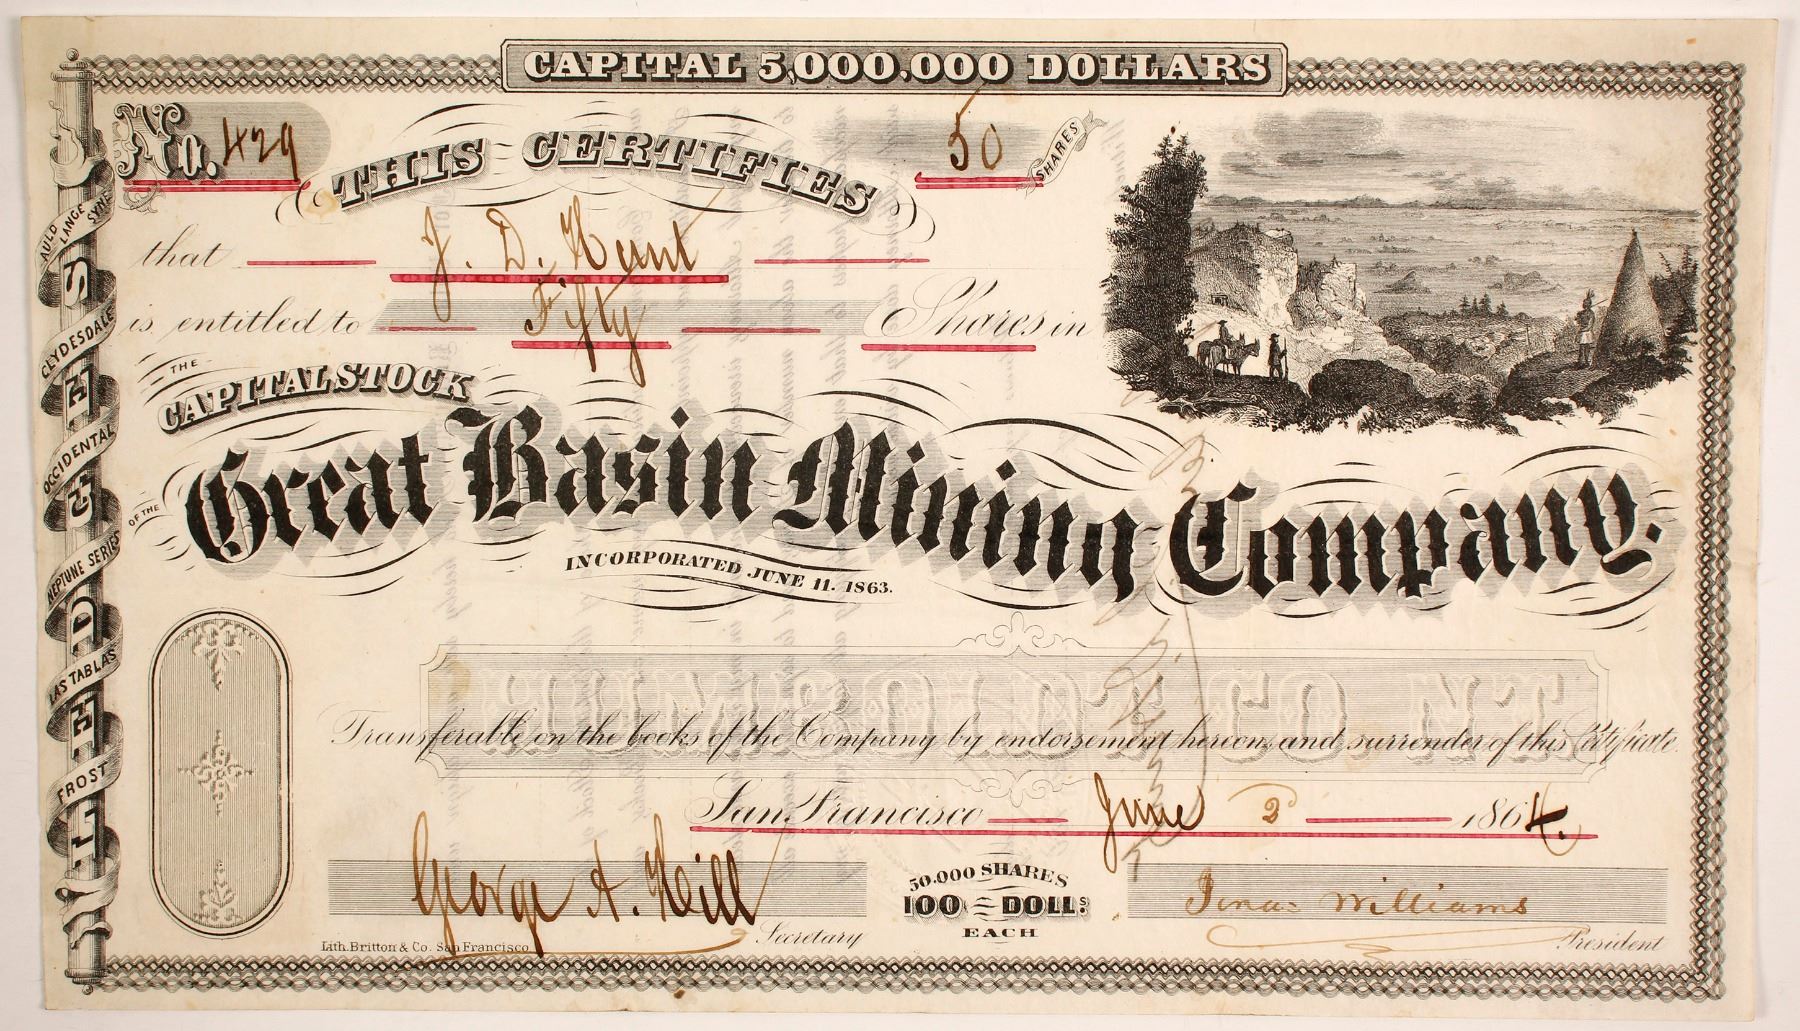 CAPITAL 5,000,000 DOLLARS
No. 429
50 SHARES
THIS CERTIFIES
that J. D. Hunt
is entitled to Fifty Shares in
THE
CAPITAL STOCK
OF THE
Great Basin Mining Company.
INCORPORATED JUNE 11. 1863.
Transferable on the books of the Company by endorsement hereon, and surrender of this Certificate.
San Francisco June 2d 1864.
George A. Hill
Secretary
50.000 SHARES
100 DOLLS.
EACH
Williams
President
Lith. Britton & Co. San Francisco
LEDGES
AULD LANGE SYNE
CLYDESDALE
OCCIDENTAL
NEPTUNE SERIES
LAS TABLAS
FROST